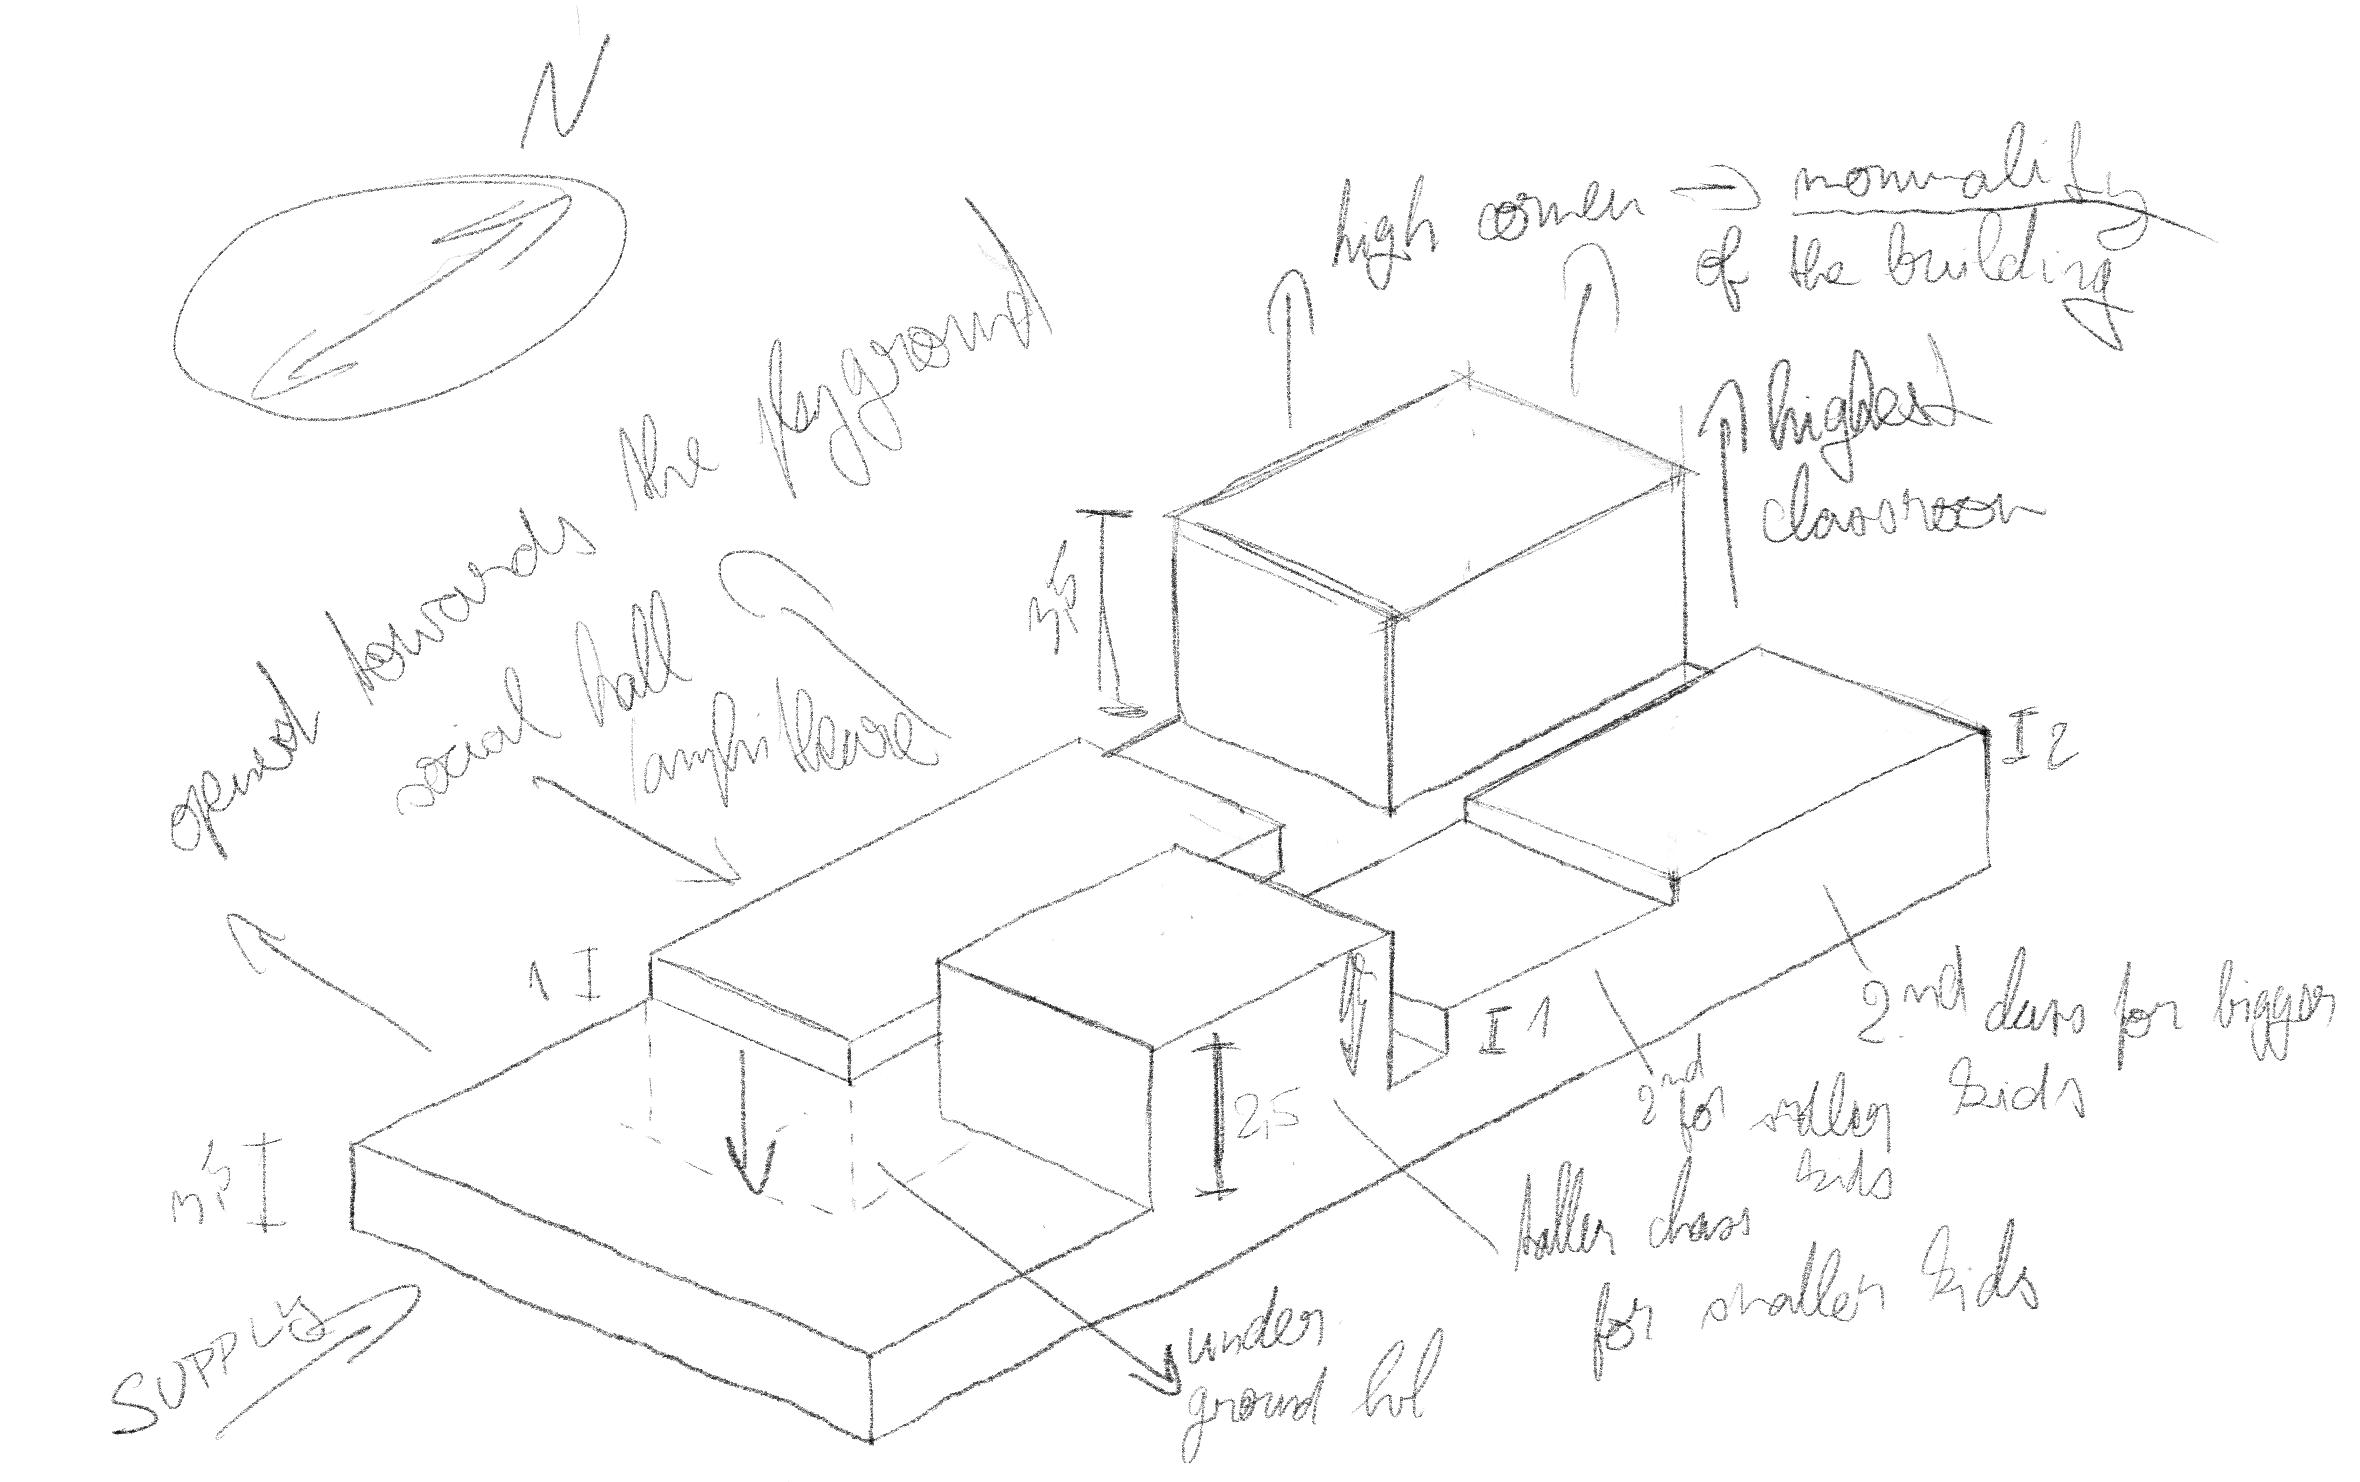 N
high corner → monumality
of the building
highest
classroom
opened towards the playground
social hall
/amphitheare
3,5
2
1
1
2,5
3,5
2nd class for bigger
kids
2nd
for smaller
kids
taller class
for smaller kids
under
ground lvl
SUPPLY